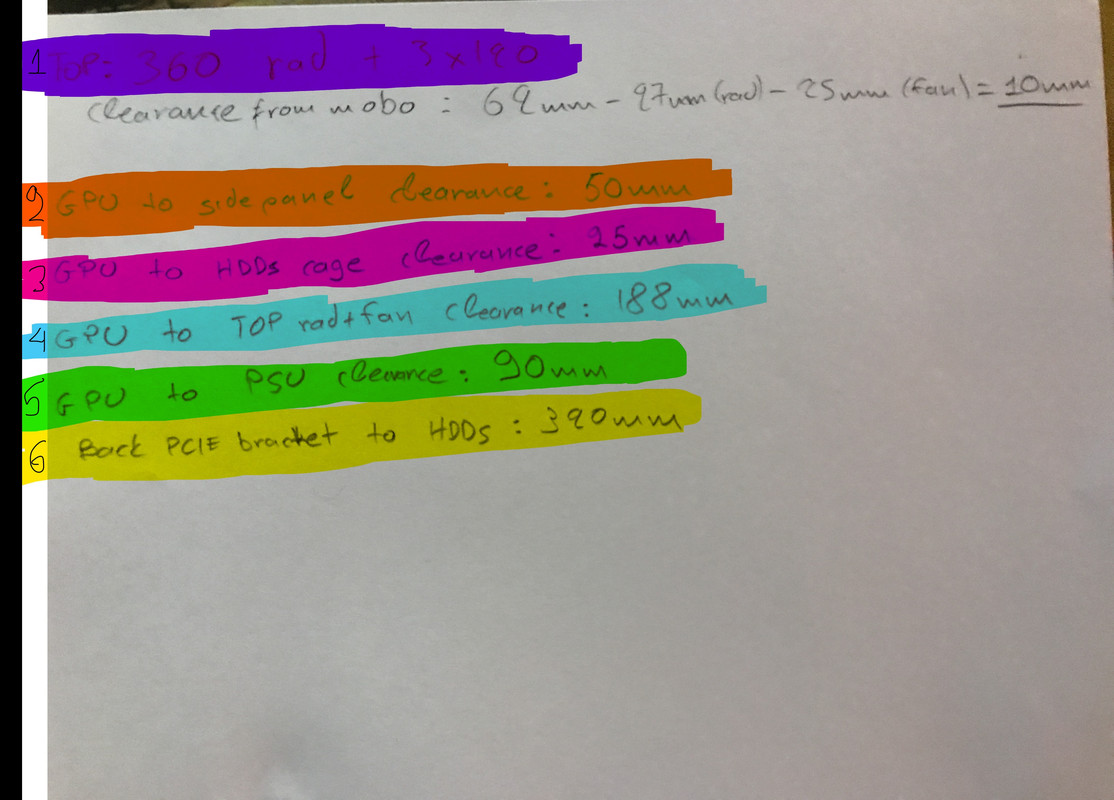 1 TOP: 360 rad + 3x120
Clearance from mobo : 62mm - 27mm (rad) - 25mm (fan) = 10mm
2 GPU to side panel clearance : 50mm
3 GPU to HDDs cage clearance : 25mm
4 GPU to TOP rad+fan clearance : 188mm
5 GPU to PSU clearance : 90mm
6 Back PCIE bracket to HDDs : 320mm